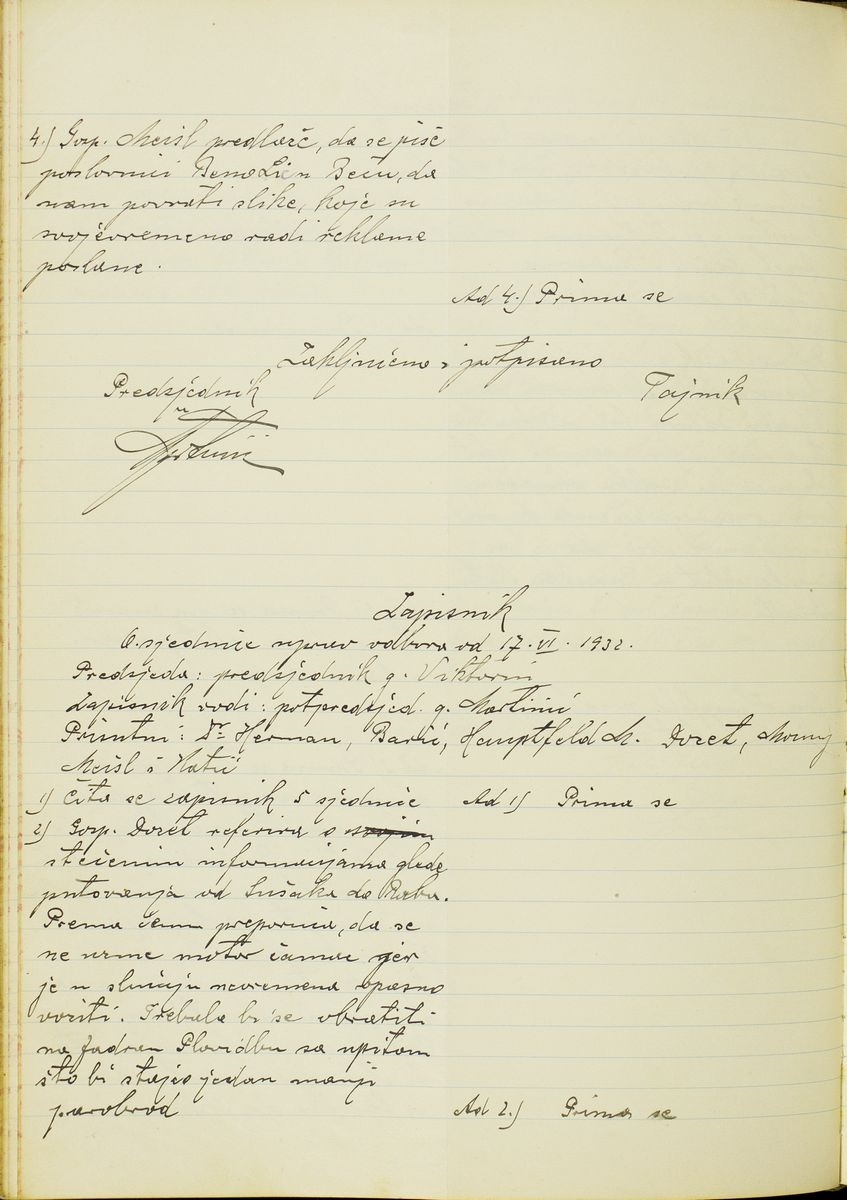 4.) Gosp. Meisl predlaže, da se piše
poslovnici u Beču, da
nam povrati slike, koje su
svojevremeno radi reklame
poslane.
Ad 4.) Prima se
Zaključeno i potpisano
Predsjednik
Tajnik
Zapisnik
6. sjednice uprav odbora od 17. VI. 1932.
Predsjeda: predsjednik g.
Zapisnik vodi: potpredsjed. g. Martinić
Prisutni: Dr Herman, Barlić, Hauptfeld M. Dozet,
Meisl i Matić
1) Čita se zapisnik 5 sjednice
Ad 1) Prima se
2) Gosp. Dozet referira o svojim
stečenim informacijama glede
putovanja od Sušaka do Raba.
Prema čemu preporuča, da se
ne uzme motor čamac jer
je u slučaju nevremena opasno
voziti. Trebala bi se obratiti
na Jadran Plovidbu sa upitom
što bi stajao jedan manji
parobrod
Ad 2.) Prima se